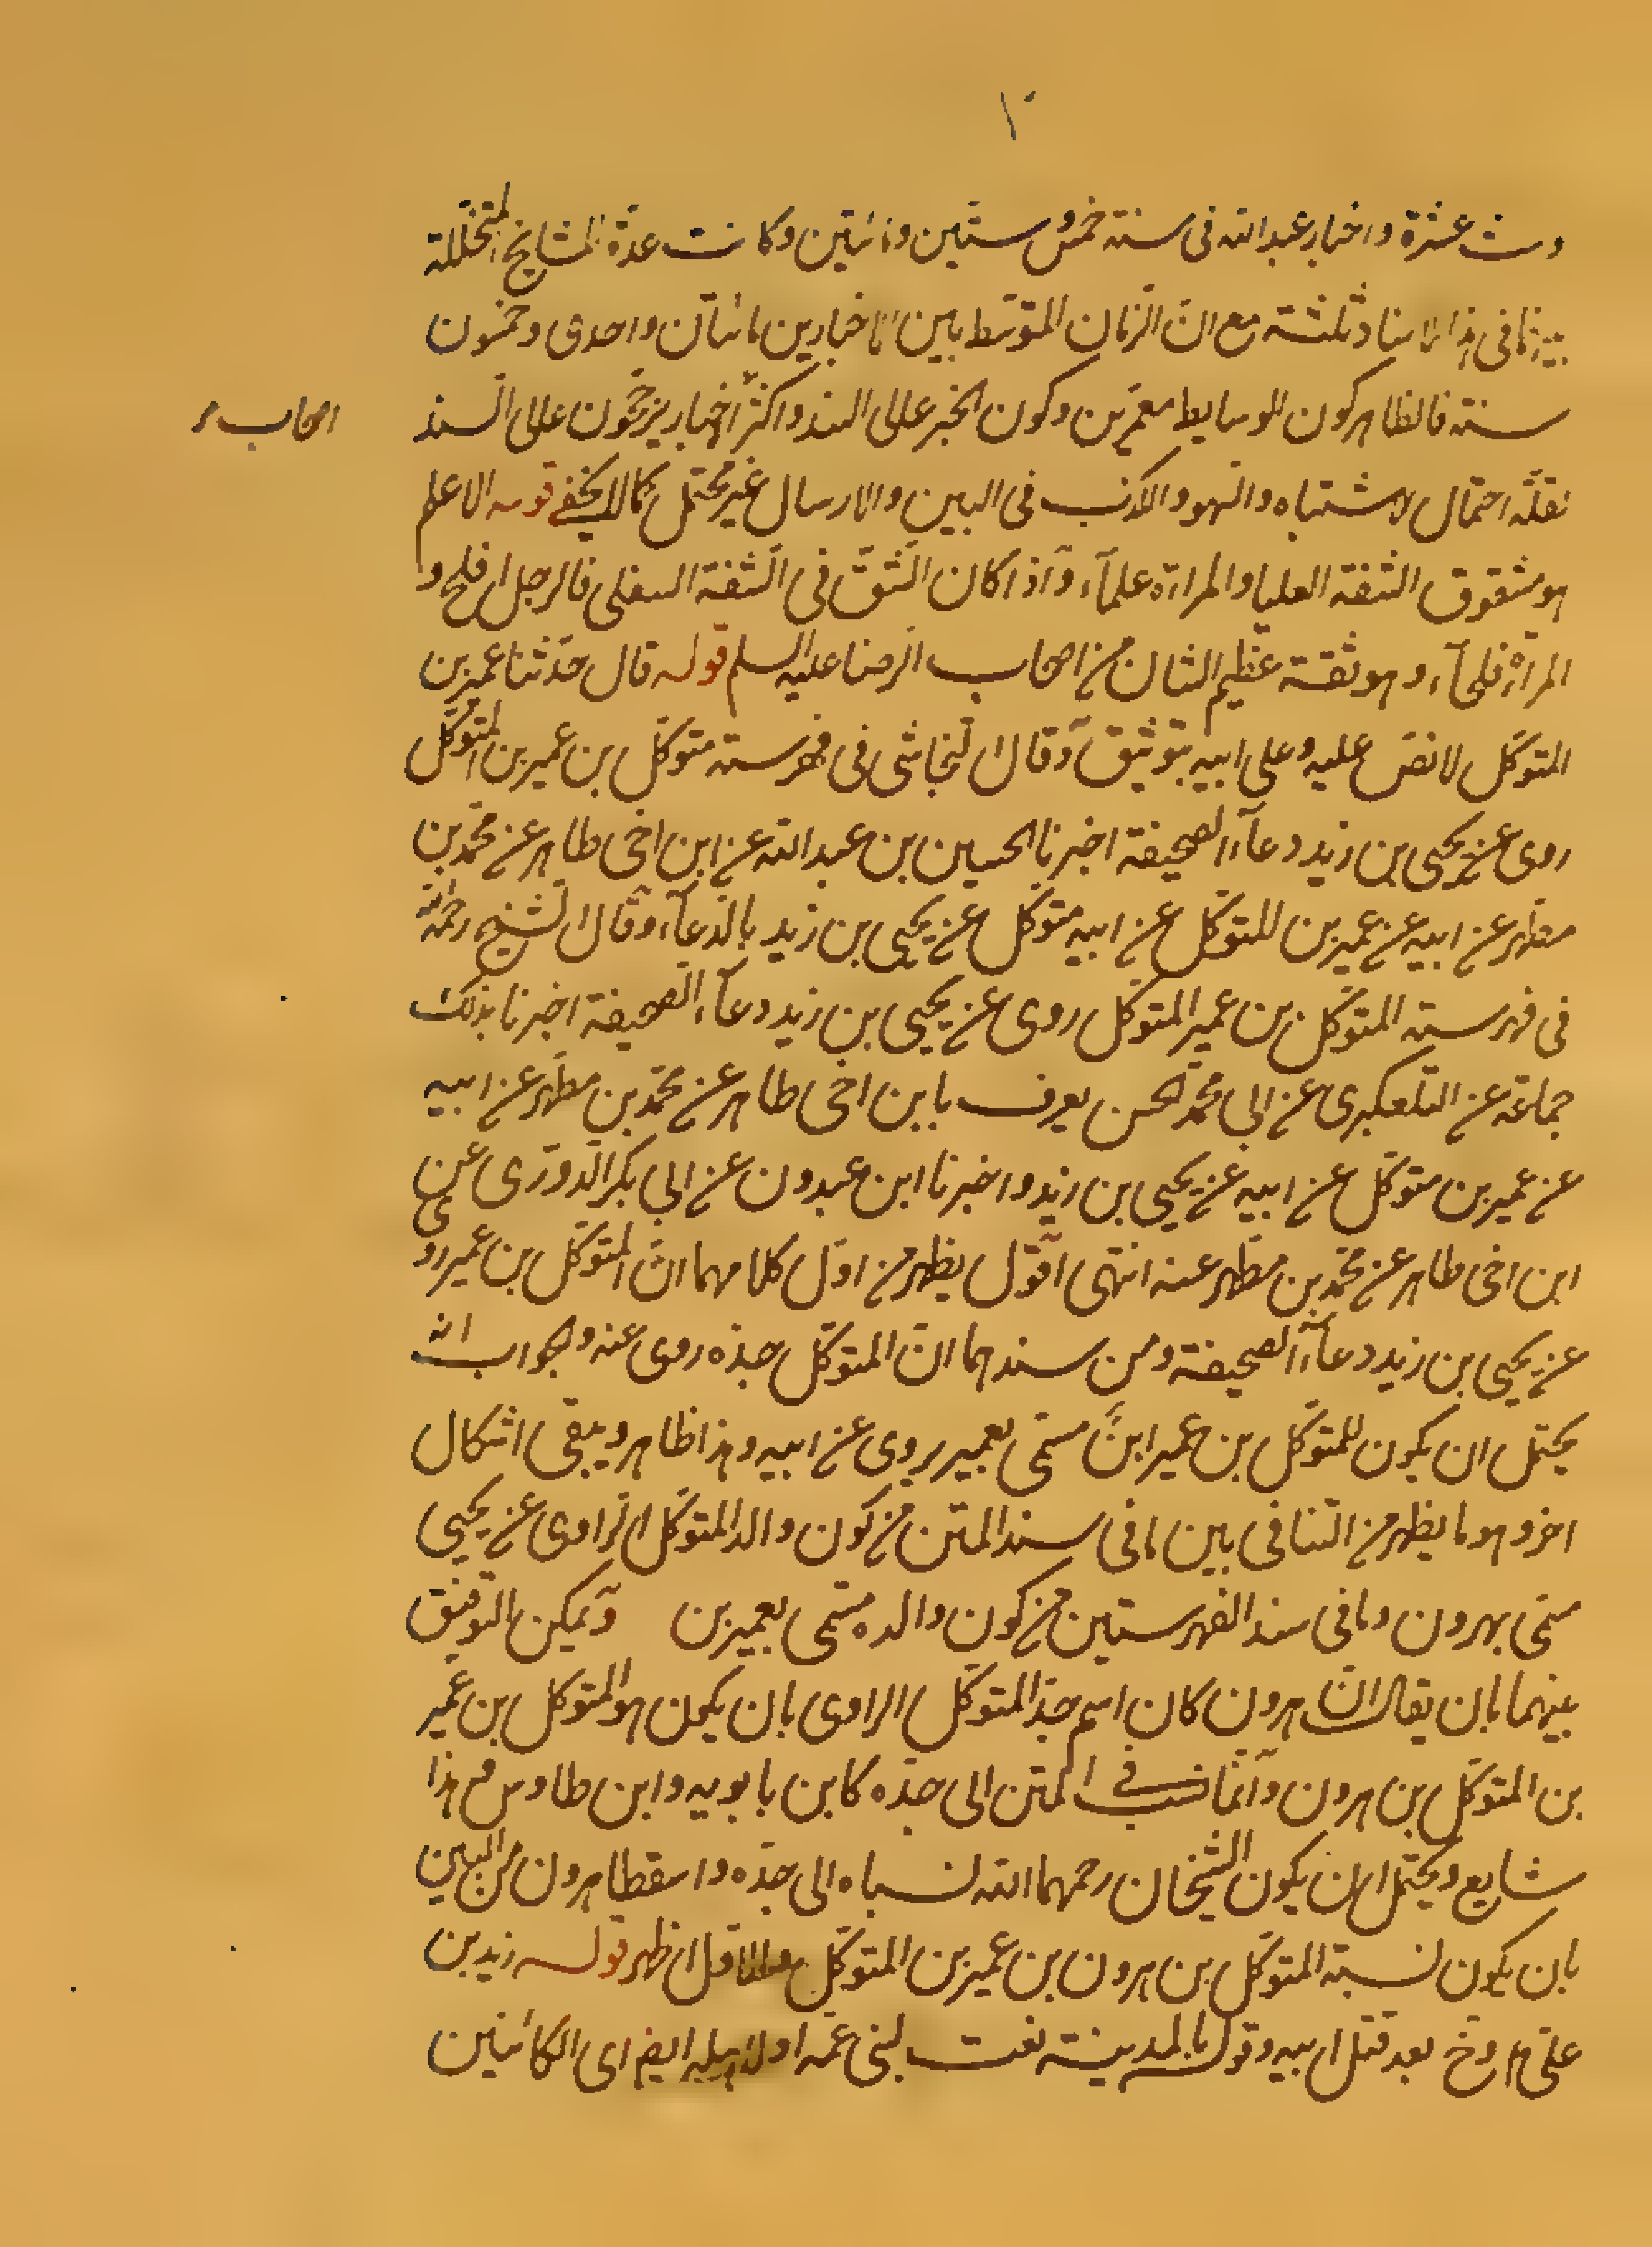 ١٠
وست عشرة واخبار عبد الله فى سنة خمس وستين ومائتين وكانت عدة المشايخ المتخللة
بينهما فى هذا الاسناد ثلثة مع ان الزمان المتوسط بين الاخبارين مائتان واحدى وخمسون
سنة فالظاهر كون الوسايط معمرين وكون الخبر عالى السند واكثر اخبار يرجحون عالى السند
اصحاب
لقلة احتمال الاشتباه والسهو والكذب فى البين والارسال غير محتمل كما لا يخفى قوله الاعلم
هو مشقوق الشفة العليا والمراة علماء واذا كان الشق فى الشفة السفلى فالرجل افلح و
المراة فلحاء وهو ثقة عظيم الشان من اصحاب الرضا عليه السلم قوله قال حدثنا عمير بن
المتوكل لا نص عليه وعلى ابيه بتوثيق وقال النجاشى فى فهرسته متوكل بن عمير بن المتوكل
روى عن يحيى بن زيد دعاء الصحيفة اخبرنا الحسين بن عبد الله عن ابن اخى طاهر عن محمد بن
مطهر عن ابيه عن عمير بن المتوكل عن ابيه متوكل عن يحيى بن زيد بالدعاء وقال الشيخ رحمه الله
فى فهرسته المتوكل بن عمير المتوكل روى عن يحيى بن زيد دعاء الصحيفة اخبرنا بذلك
جماعة عن التلعكبرى عن ابى محمد الحسن يعرف بابن اخى طاهر عن محمد بن مطهر عن ابيه
عن عمير بن متوكل عن ابيه عن يحيى بن زيد واخبرنا ابن عبدون عن ابى بكر الدورى عن
ابن اخى طاهر عن محمد بن مطهر عنه انتهى اقول يظهر من اول كلامهما ان المتوكل بن عمير روى
عن يحيى بن زيد دعاء الصحيفة ومن سندهما ان المتوكل جده روى عنه والجواب انه
يحتمل ان يكون للمتوكل بن عمير ابن مسمى بعمير يروى عن ابيه وهذا ظاهر ويبقى اشكال
اخر وهو ما يظهر من التنافى بين ما فى سند المتن من كون والد المتوكل الراوى عن يحيى
سمى بهرون وما فى سند الفهرستين من كون والده مسمى بعمير بن ويمكن التوفيق
بينهما بان يقال ان هرون كان اسم جد المتوكل الراوى بان يكون هو المتوكل بن عمير
بن المتوكل بن هرون وانما نسب فى المتن الى جده كابن بابويه وابن طاوس وهذا
شايع ويحتمل ان يكون الشيخان رحمهما الله نسباه الى جده واسقطا هرون من البين
بان يكون نسبة المتوكل بن هرون بن عمير بن المتوكل والاول اظهر قوله زيد بن
على وخ بعد قتل ابيه وقوله بالمدينة نعت لبنى عمه او لاهله ايضا اى الكائنين